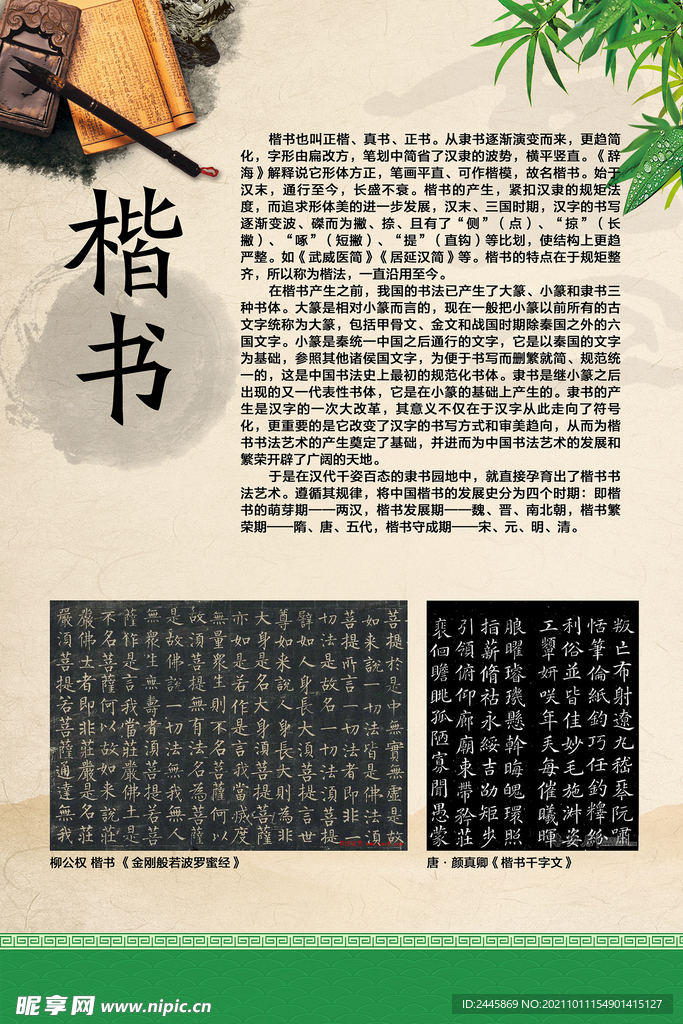 楷书
楷书也叫正楷、真书、正书。从隶书逐渐演变而来，更趋简
化，字形由扁改方，笔划中简省了汉隶的波势，横平竖直。《辞
海》解释说它形体方正，笔画平直、可作楷模，故名楷书。始于
汉末，通行至今，长盛不衰。楷书的产生，紧扣汉隶的规矩法
度，而追求形体美的进一步发展，汉末、三国时期，汉字的书写
逐渐变波、磔而为撇、捺、且有了“侧”（点）、“掠”（长
撇）、“啄”（短撇）、“提”（直钩）等比划，使结构上更趋
严整。如《武威医简》《居延汉简》等。楷书的特点在于规矩整
齐，所以称为楷法，一直沿用至今。
在楷书产生之前，我国的书法已产生了大篆、小篆和隶书三
种书体。大篆是相对小篆而言的，现在一般把小篆以前所有的古
文字统称为大篆，包括甲骨文、金文和战国时期除秦国之外的六
国文字。小篆是秦统一中国之后通行的文字，它是以秦国的文字
为基础，参照其他诸侯国文字，为便于书写而删繁就简、规范统
一的，这是中国书法史上最初的规范化书体。隶书是继小篆之后
出现的又一代表性书体，它是在小篆的基础上产生的。隶书的产
生是汉字的一次大改革，其意义不仅在于汉字从此走向了符号
化，更重要的是它改变了汉字的书写方式和审美趋向，从而为楷
书书法艺术的产生奠定了基础，并进而为中国书法艺术的发展和
繁荣开辟了广阔的天地。
于是在汉代千姿百态的隶书园地中，就直接孕育出了楷书书
法艺术。遵循其规律，将中国楷书的发展史分为四个时期：即楷
书的萌芽期——两汉，楷书发展期——魏、晋、南北朝，楷书繁
荣期——隋、唐、五代，楷书守成期——宋、元、明、清。
菩提於是中無實無虛是故
如來說一切法皆是佛法須
菩提所言一切法者即非一
切法是故名一切法須菩提
譬如人身長大須菩提言世
尊如來說人身長大則為非
大身是名大身須菩提菩薩
亦如是若作是言我當滅度
無量眾生則不名菩薩何以
故須菩提無有法名為菩薩
是故佛說一切法無我無人
無眾生無壽者須菩提若菩
薩作是言我當莊嚴佛土是
不名菩薩何以故如來說莊
嚴佛土者即非莊嚴是名莊
嚴須菩提若菩薩通達無我
柳公权 楷书《金刚般若波罗蜜经》
叛亡布射遼九嵇琴阮嘯
恬筆倫紙鈞巧任釣釋紛
利俗並皆佳妙毛施淑姿
工顰妍咲年矢每催羲暉
朗曜璿璣懸斡晦魄環照
指薪脩祜永綏吉劭矩步
引領俯仰廊廟束帶矜莊
裵徊瞻眺孤陋寡聞愚蒙
唐·颜真卿《楷书千字文》
昵享网 www.nipic.cn
ID:2445869 NO:20211011154901415127